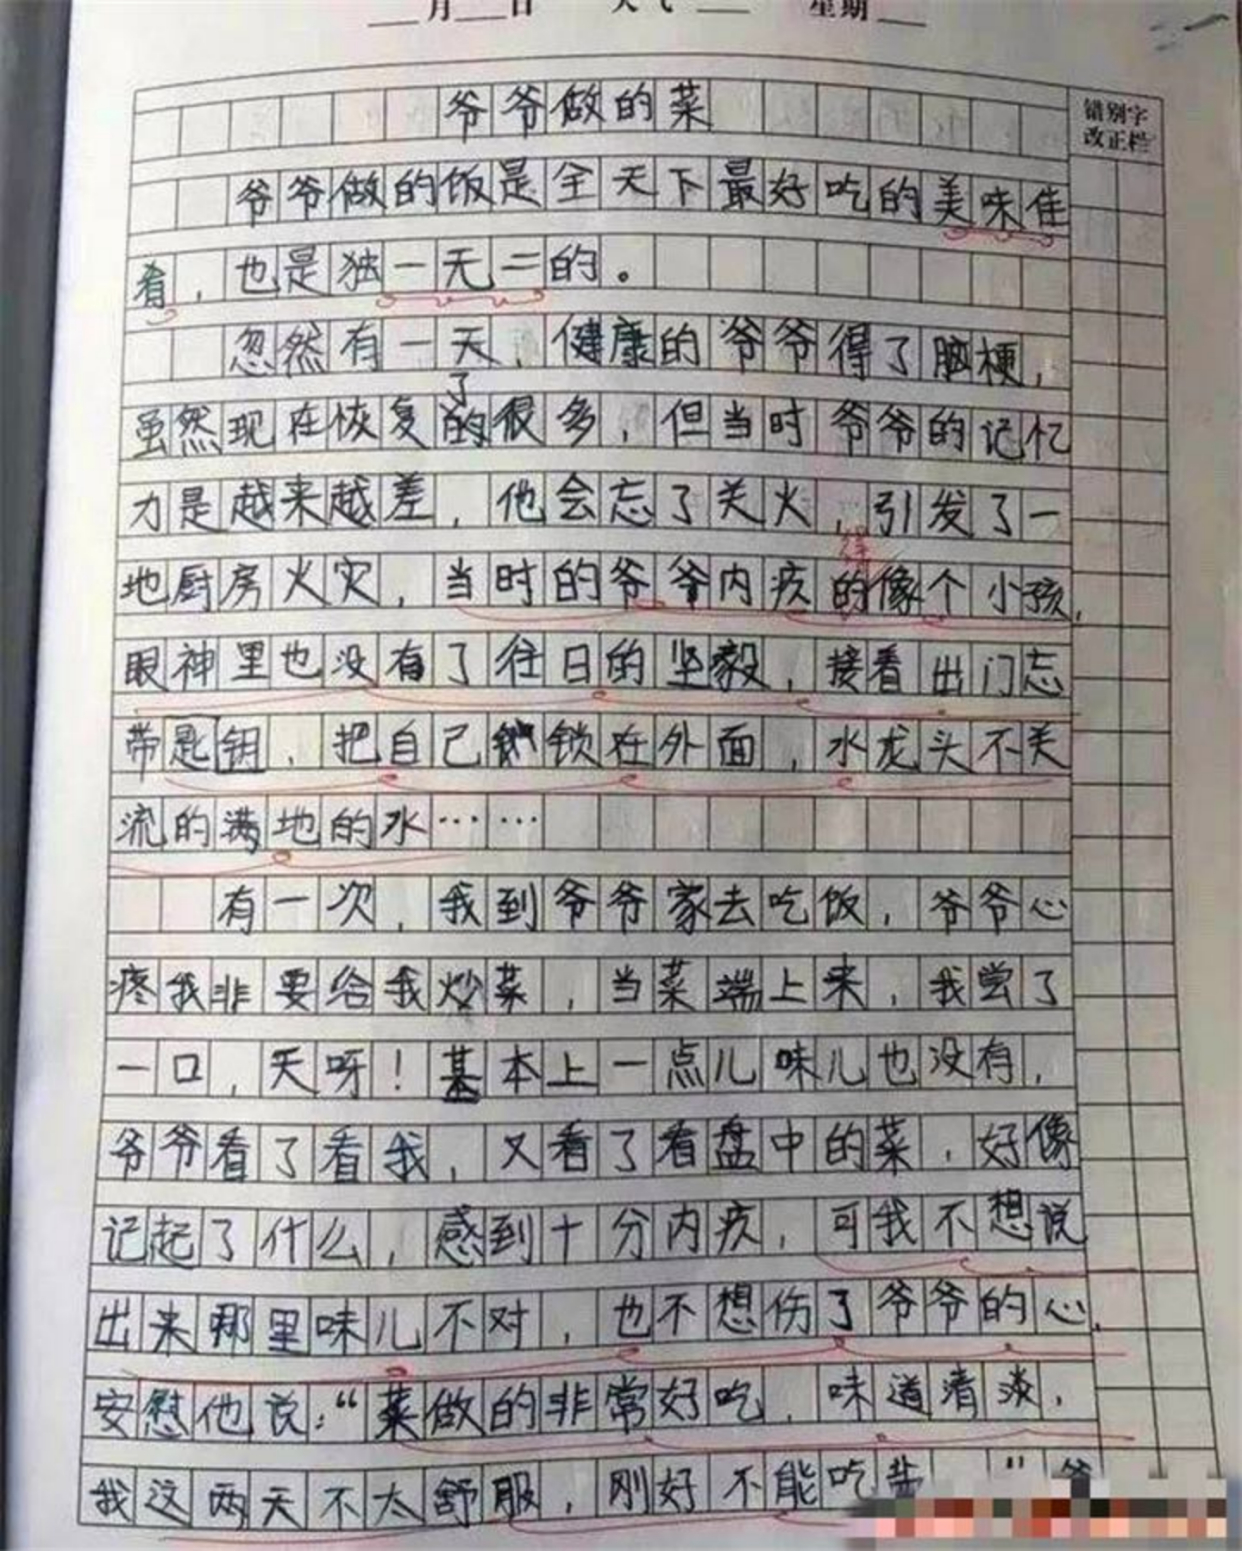 月 日 天气 星期
爷爷做的菜
错别字
改正栏
爷爷做的饭是全天下最好吃的美味佳
肴，也是独一无二的。
忽然有一天，健康的爷爷得了脑梗，
了
虽然现在恢复的很多，但当时爷爷的记忆
力是越来越差，他会忘了关火，引发了一
地厨房火灾，当时的爷爷内疚的像个小孩，
眼神里也没有了往日的坚毅，接着出门忘
带匙钥，把自己锁在外面，水龙头不关
流的满地的水……
有一次，我到爷爷家去吃饭，爷爷心
疼我非要给我炒菜，当菜端上来，我尝了
一口，天呀！基本上一点儿味儿也没有，
爷爷看了看我，又看了看盘中的菜，好像
记起了什么，感到十分内疚，可我不想说
出来那里味儿不对，也不想伤了爷爷的心，
安慰他说：“菜做的非常好吃，味道清淡，
我这两天不太舒服，刚好不能吃盐 ”爷